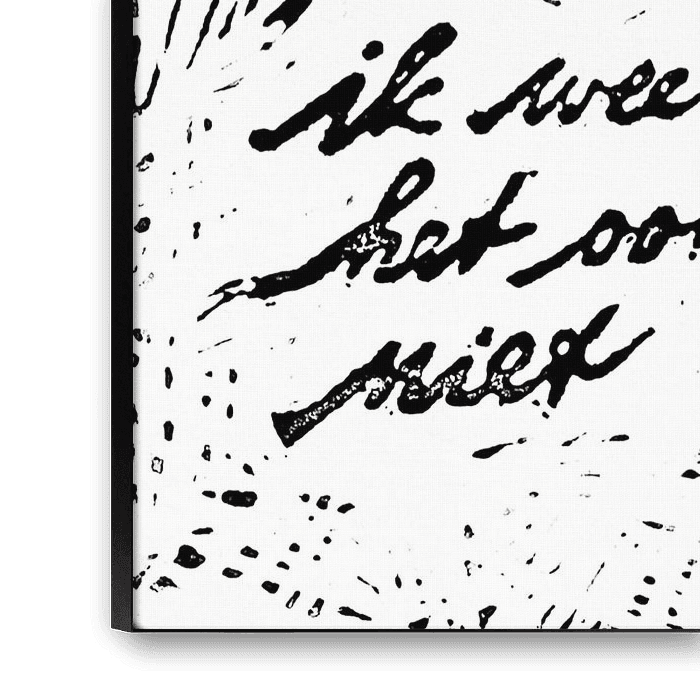 ik wee
het oo
niet